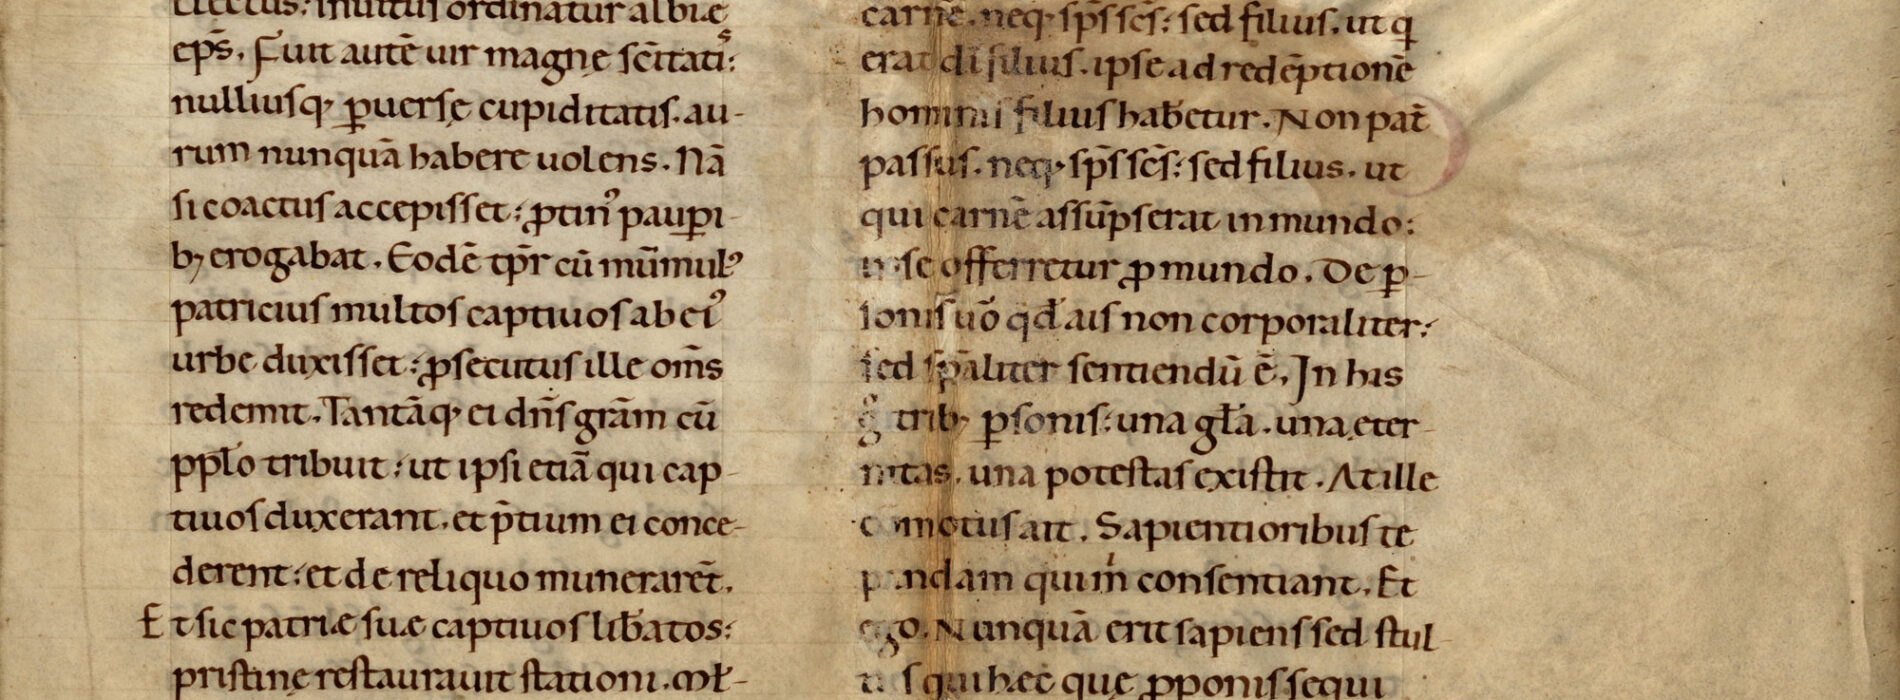 electus: inuitus ordinatur albię
ep̄s. Fuit autē uir magnę sc̄itatis:
nulliusq; ꝑuersę cupiditatis. au-
rum nunquā habere uolens. Nā
si coactus accepisset: ꝓtinꝰ pauꝑi-
b; erogabat. Eodē tp̄r cū mūmulꝰ
patricius multos captiuos ab eiꝰ
urbe duxisset: ꝓsecutus ille om̄s
redemit. Tantāq; ei dn̄s grām cū
ppl̄o tribuit: ut ipsi etiā qui cap-
tiuos duxerant. et p̄tium ei conce-
derent: et de reliquo munerarēt.
Et sic patriæ suæ captiuos lib̄atos:
pristinę restaurauit stationi. Ml̄-
carnē. neq; sp̄s sc̄s: sed filius. ut q̇
erat dī filius. ipse ad redēptionē
hominis filius hab̄etur. Non pat̄
passus. neq; sp̄s sc̄s: sed filius. ut
qui carnē assūpserat in mundo:
ipse offerretur ꝓ mundo. De ꝑ-
sonis uō qd̄ ais non corporaliter:
sed sp̄aliter sentiendū ē. In his
gͦ trib; ꝑsonis: una gl̄a. una eter-
nitas. una potestas existit. At ille
cōmotus ait. Sapientioribus te
pandam qui m̍ consentiant. Et
ego. Nunquā erit sapiens sed stul-
tus qui hec quę ꝓponis sequi